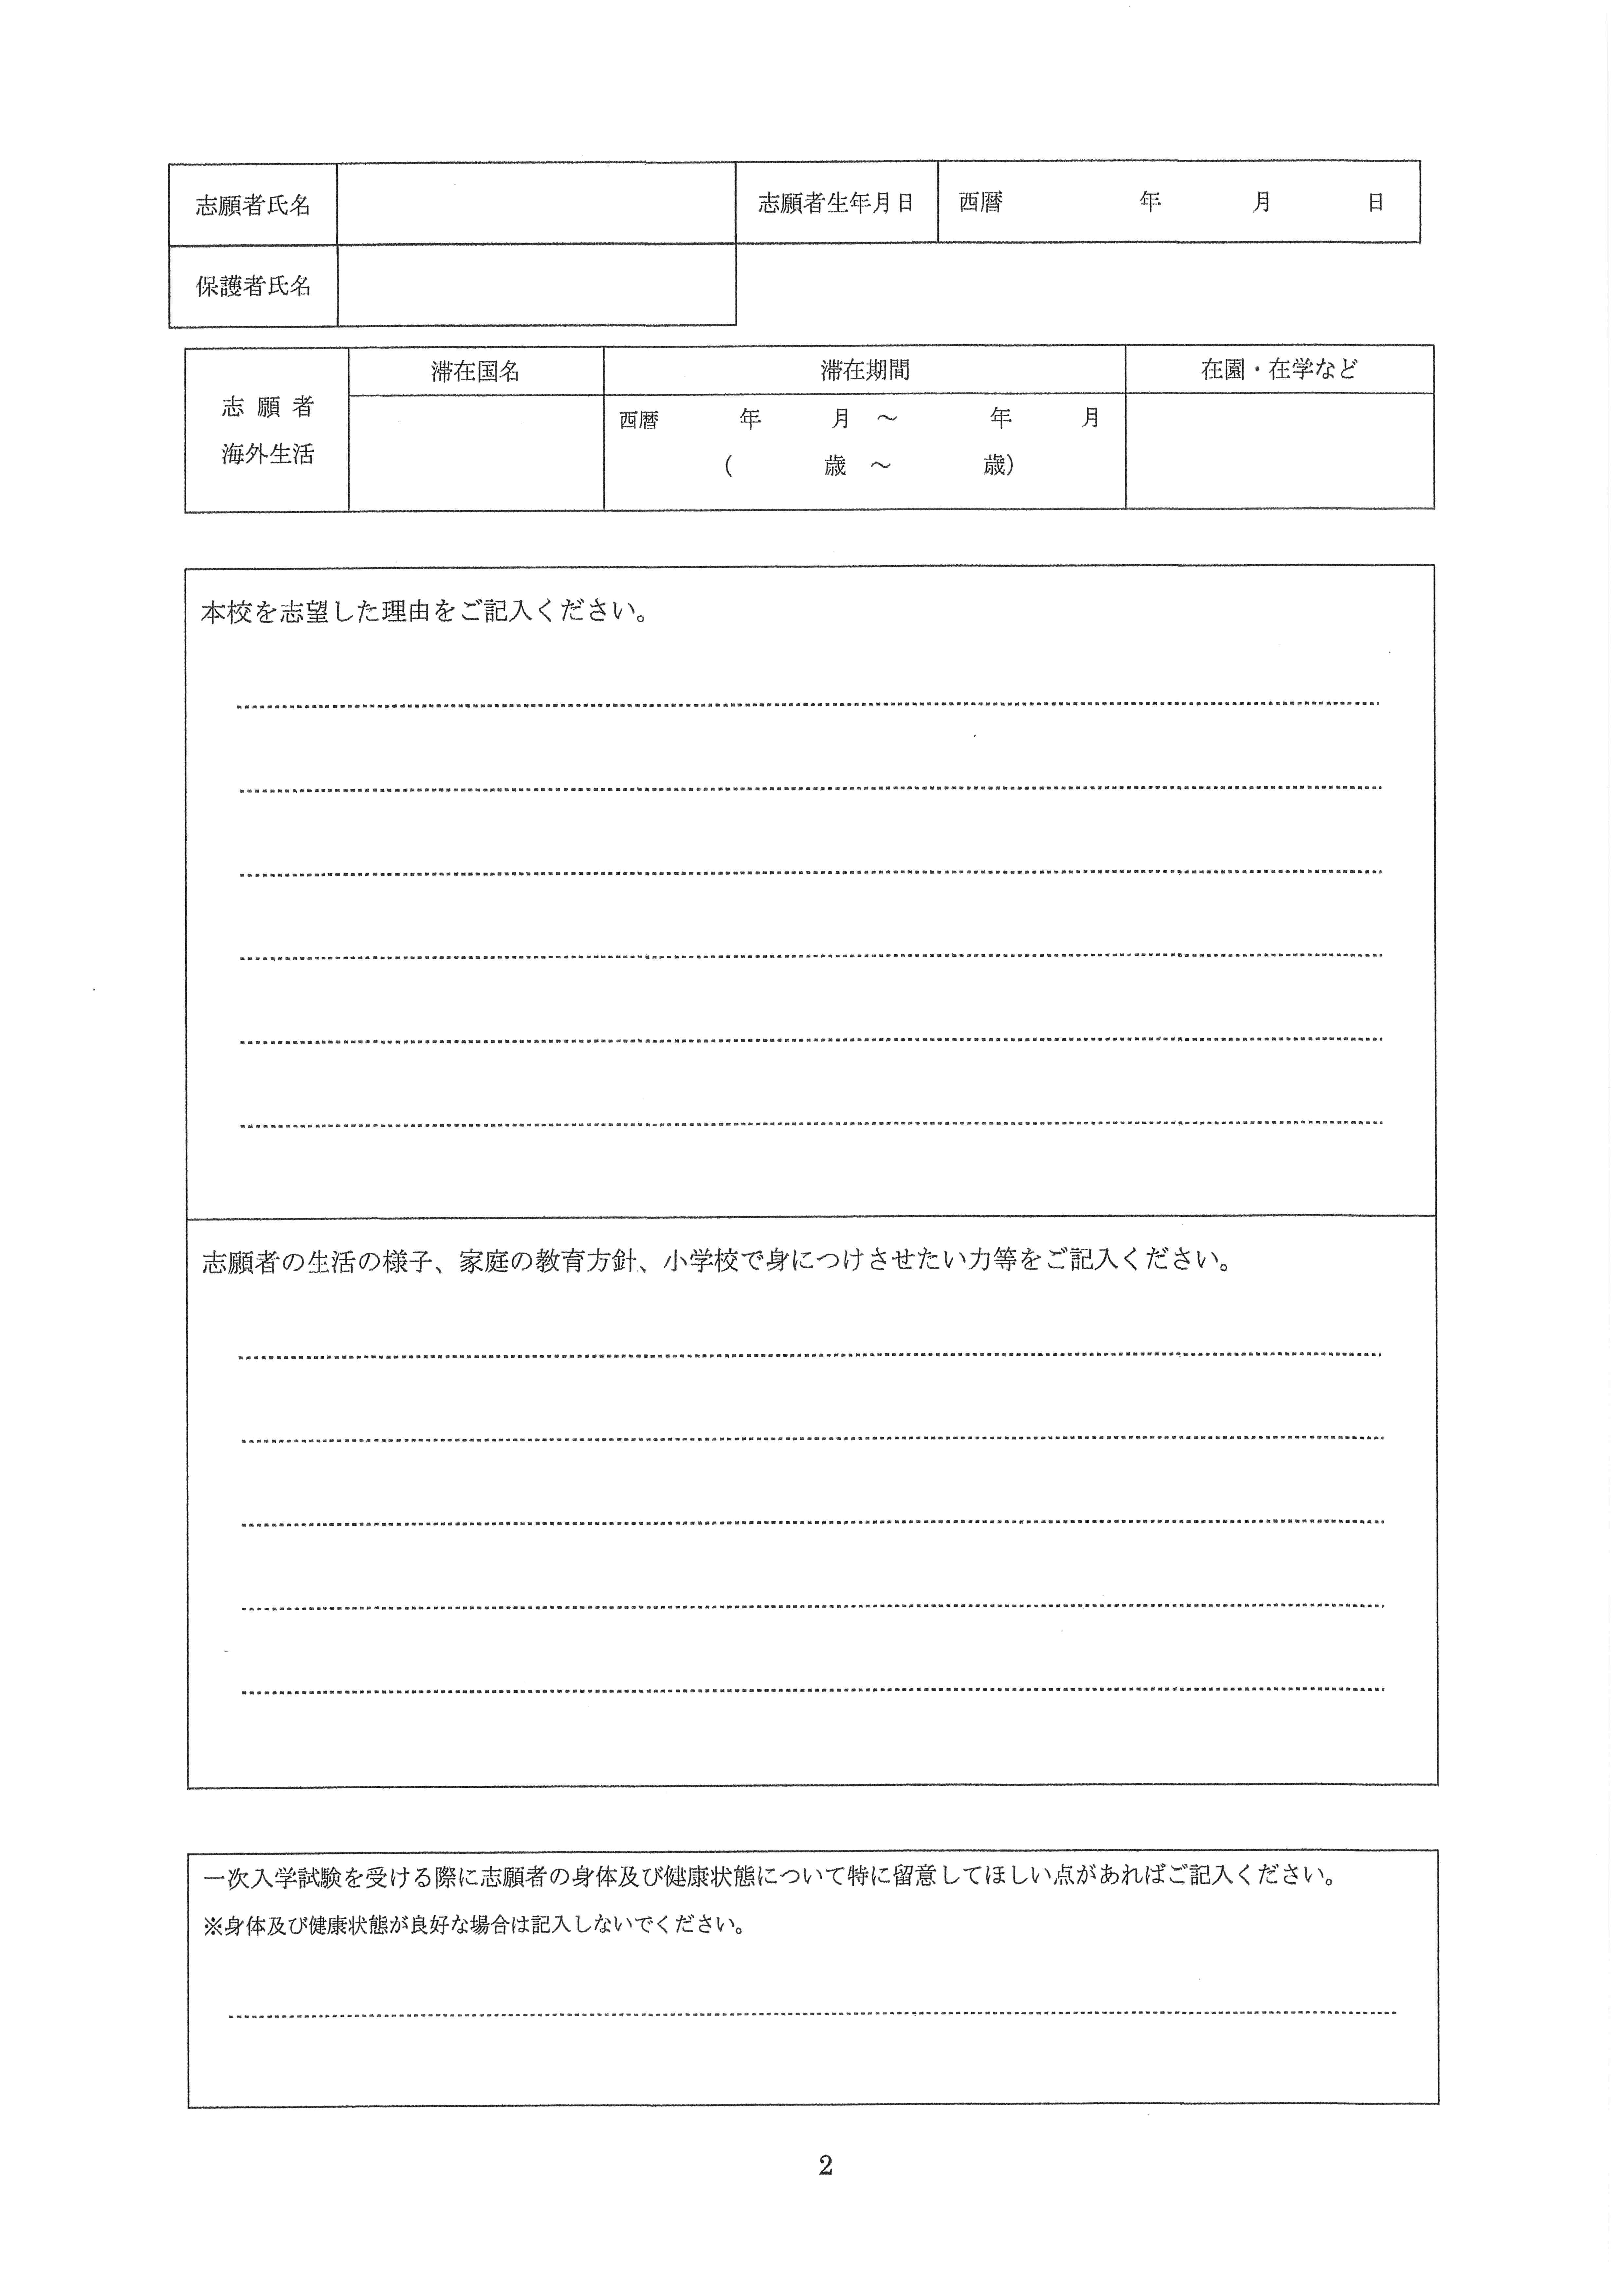 志願者氏名 志願者生年月日 西暦 年 月 日
保護者氏名
志願者 海外生活
滞在国名 滞在期間 在園・在学など
西暦 年 月 ～ 年 月
( 歳 ～ 歳)
本校を志望した理由をご記入ください。
志願者の生活の様子、家庭の教育方針、小学校で身につけさせたい力等をご記入ください。
一次入学試験を受ける際に志願者の身体及び健康状態について特に留意してほしい点があればご記入ください。
※身体及び健康状態が良好な場合は記入しないでください。
2